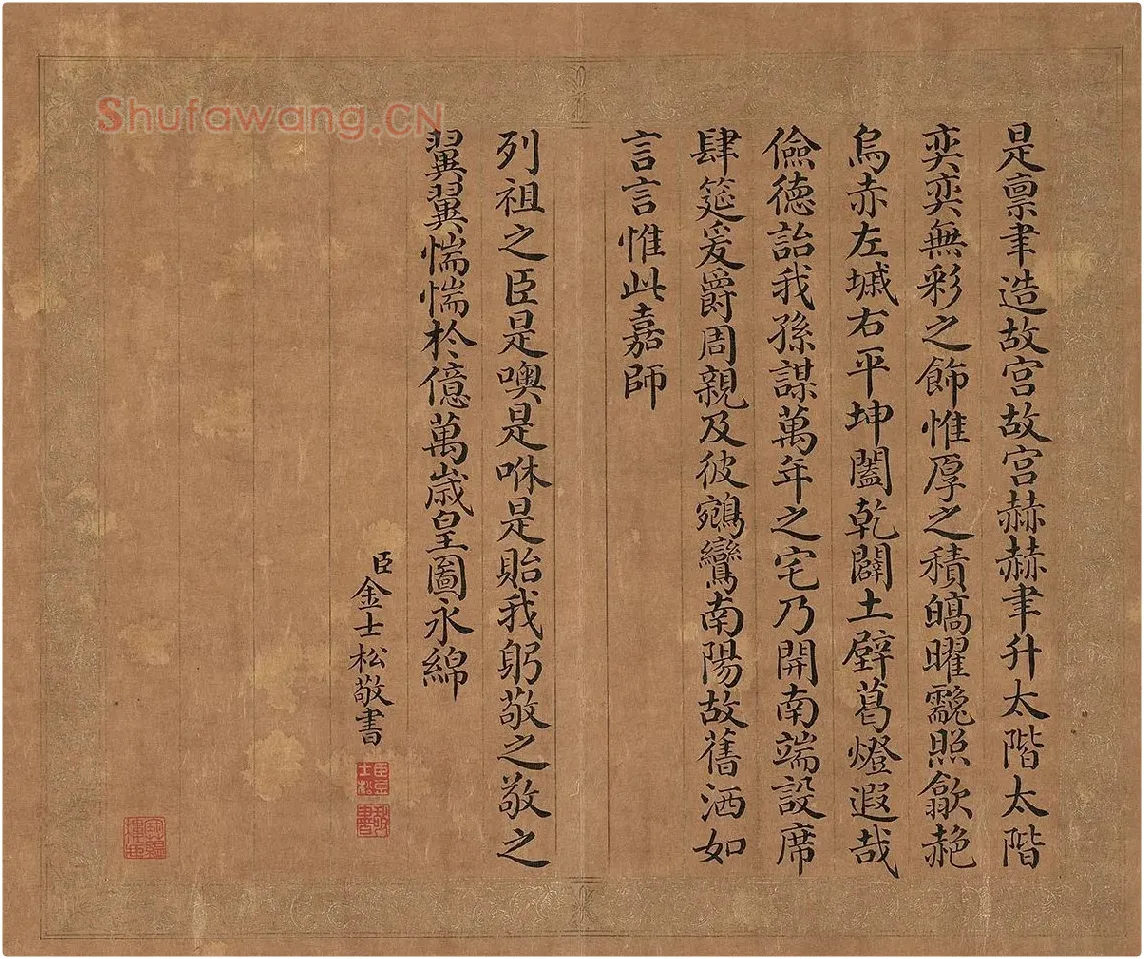 Shufawang.CN
是禀聿造故宫故宫赫赫聿升太階太階
奕奕無彩之飾惟厚之積皜曜靉照歙赩
烏赤左墄右平坤闔乾闢土壁葛燈遐哉
儉德詒我孫謀萬年之宅乃開南端設席
肆筵爰爵周親及彼鵷鸞南陽故舊洒如
言言惟此嘉師
列祖之臣是噢是咻是貽我躬敬之敬之
翼翼惴惴於億萬歲皇圖永綿
臣金士松敬書
臣金士松
敬書